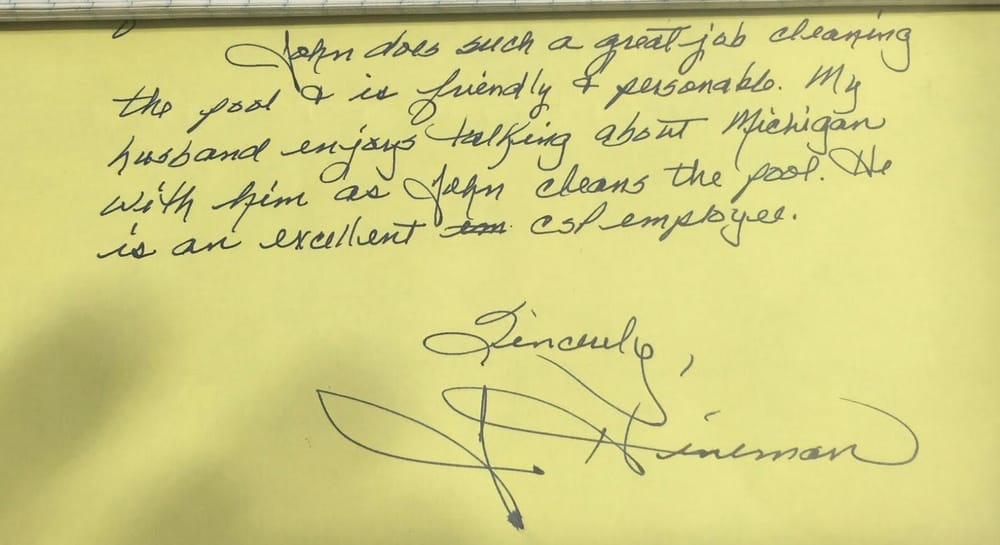 John does such a great job cleaning
the pool & is friendly & personable. My
husband enjoys talking about Michigan
with him as John cleans the pool. He
is an excellent em CSP employee.
Sincerely,
J Hineman